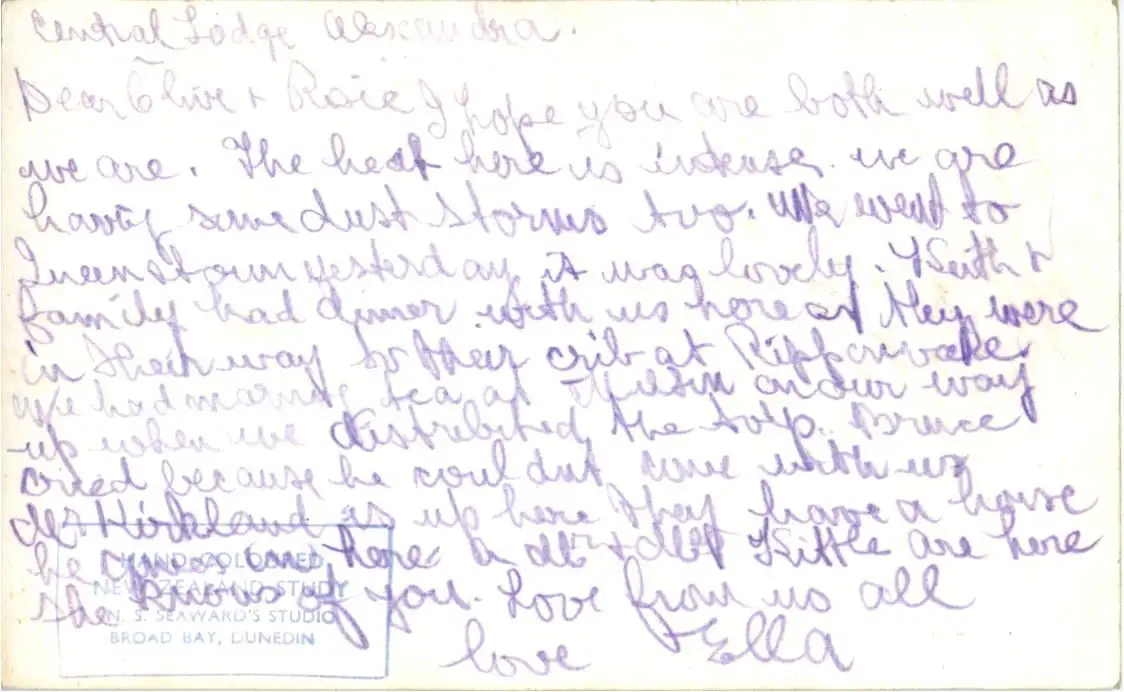 Central Lodge Alexandra.
Dear Clive + Rosie I hope you are both well as
we are. The heat here is intense. we are
having some dust storms too. We went to
Queenstown yesterday it was lovely. Keith +
family had dinner with us here they were
in their way to their crib at Ripponvale.
We had morning tea at Milton on our way
up when we distrebited the
cried because he couldnt come with us
Mr Kirkland is up here they have a house
he here Mr + Mrs Kittle are here
she knows of you. Love from us all
love Ella
HAND COLOURED
NEW ZEALAND STUDY
N. S. SEAWARD'S STUDIO
BROAD BAY, DUNEDIN